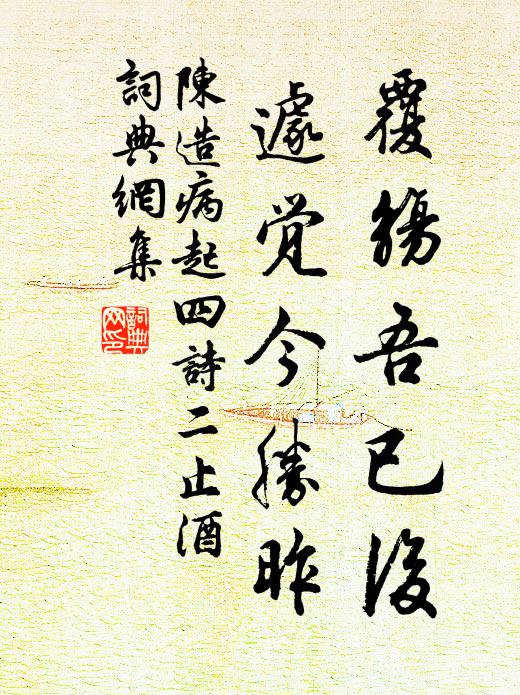 覆觴吾已後
遽觉今勝昨
陳造病起四詩二止酒
詞典網集
詞典网印